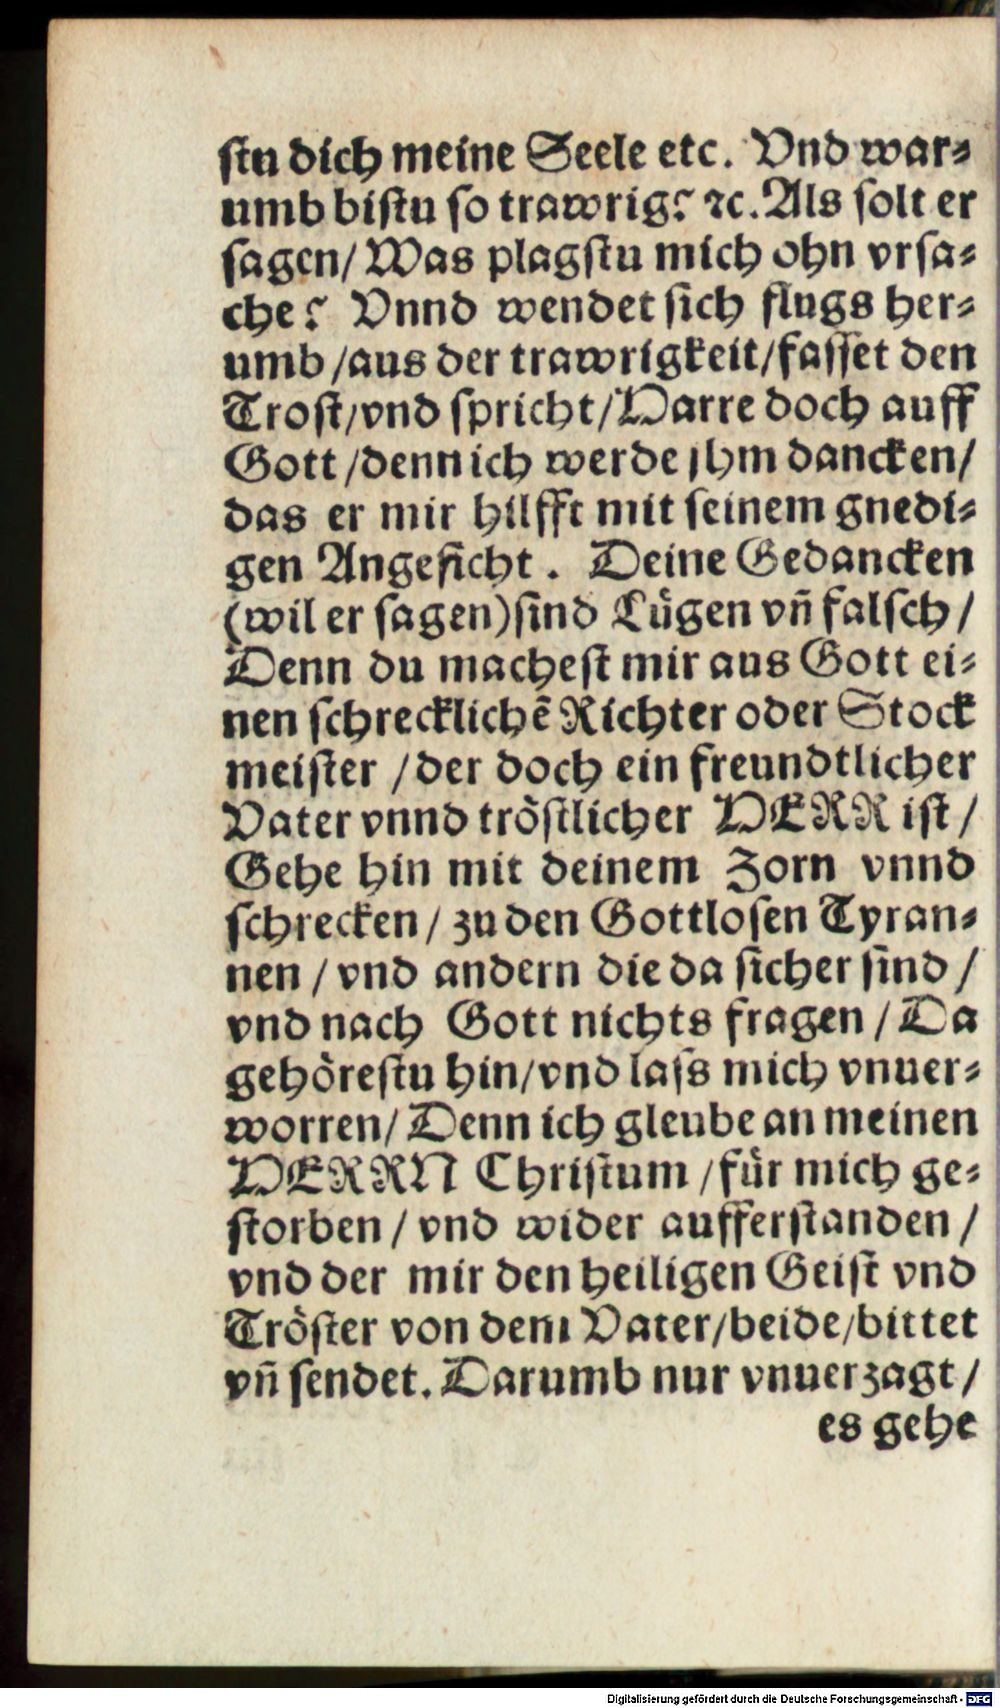 ſtu dich meine Seele etc. Vnd war⸗
umb biſtu ſo trawrig? ꝛc. Als ſolt er
ſagen/ Was plagſtu mich ohn vrſa⸗
che? Vnnd wendet ſich flugs her⸗
umb /aus der trawrigkeit/faſſet den
Troſt/vnd ſpricht/Harre doch auff
Gott /denn ich werde jhm dancken/
das er mir hilfft mit ſeinem gnedi⸗
gen Angeſicht. Deine Gedancken
(wil er ſagen)ſind Lügen vñ falſch/
Denn du macheſt mir aus Gott ei⸗
nen ſchrecklichẽ Richter oder Stock
meiſter /der doch ein freundtlicher
Vater vnnd tröſtlicher HERR iſt/
Gehe hin mit deinem Zorn vnnd
ſchrecken/ zu den Gottloſen Tyran⸗
nen / vnd andern die da ſicher ſind /
vnd nach Gott nichts fragen /Da
gehöreſtu hin/vnd laſs mich vnuer⸗
worren/ Denn ich gleube an meinen
HERRN Chriſtum /für mich ge⸗
ſtorben/ vnd wider aufferſtanden/
vnd der mir den heiligen Geiſt vnd
Tröſter von dem Vater/beide/bittet
vñ ſendet. Darumb nur vnuerzagt/
es gehe
Digitalisierung gefördert durch die Deutsche Forschungsgemeinschaft - DFG